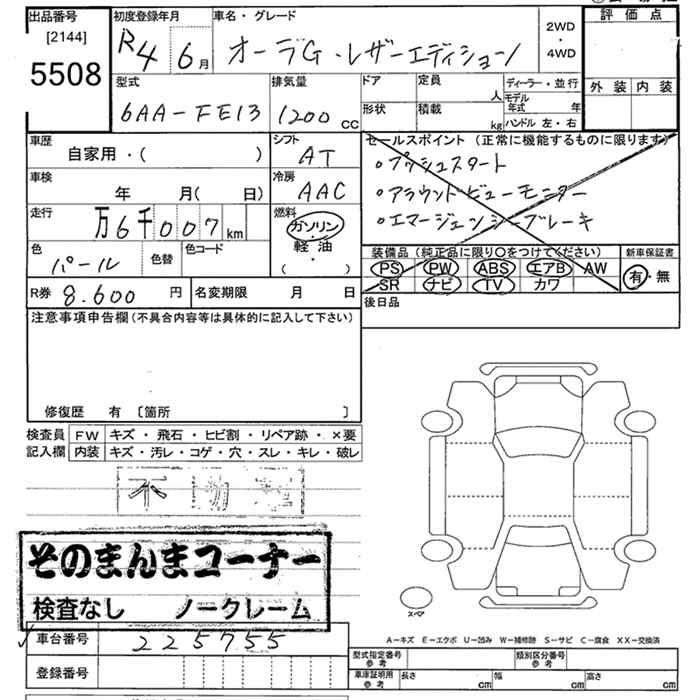 出品番号 [2144] 5508
初度登録年月 R4 6月
車名・グレード オーラG・レザーエディション
2WD・4WD
評価点
外装 内装
型式 6AA-FE13
排気量 1200cc
ドア 形状
定員 人
積載 kg
ディーラー・並行
モデル年式 年
ハンドル 左・右
車歴 自家用・( )
シフト AT
車検 年 月( 日)
冷房 AAC
走行 万6千007km
燃料 ガソリン・軽油 ( )
色 パール 色替 色コード
セールスポイント(正常に機能するものに限ります)
・プッシュスタート
・アラウンドビューモニター
・エマージェンシーブレーキ
装備品(純正品に限り○をつけてください)
PS PW ABS エアB AW
SR ナビ TV カワ
新車保証書 有・無
R券 8.600円
名変期限 月 日
後日品
注意事項申告欄(不具合内容等は具体的に記入して下さい)
修復歴 有 〔箇所 〕
検査員記入欄
FW キズ・飛石・ヒビ割・リペア跡・×要
内装 キズ・汚レ・コゲ・穴・スレ・キレ・破レ
不動
そのまんまコーナー
検査なし ノークレーム
スペア
A−キズ E−エクボ U−凹み W−補修跡 S−サビ C−腐食 XX−交換済
車台番号 225755
登録番号
型式指定番号 参考
類別区分番号 参考
車庫証明用 参考 長さ cm 幅 cm 高さ cm